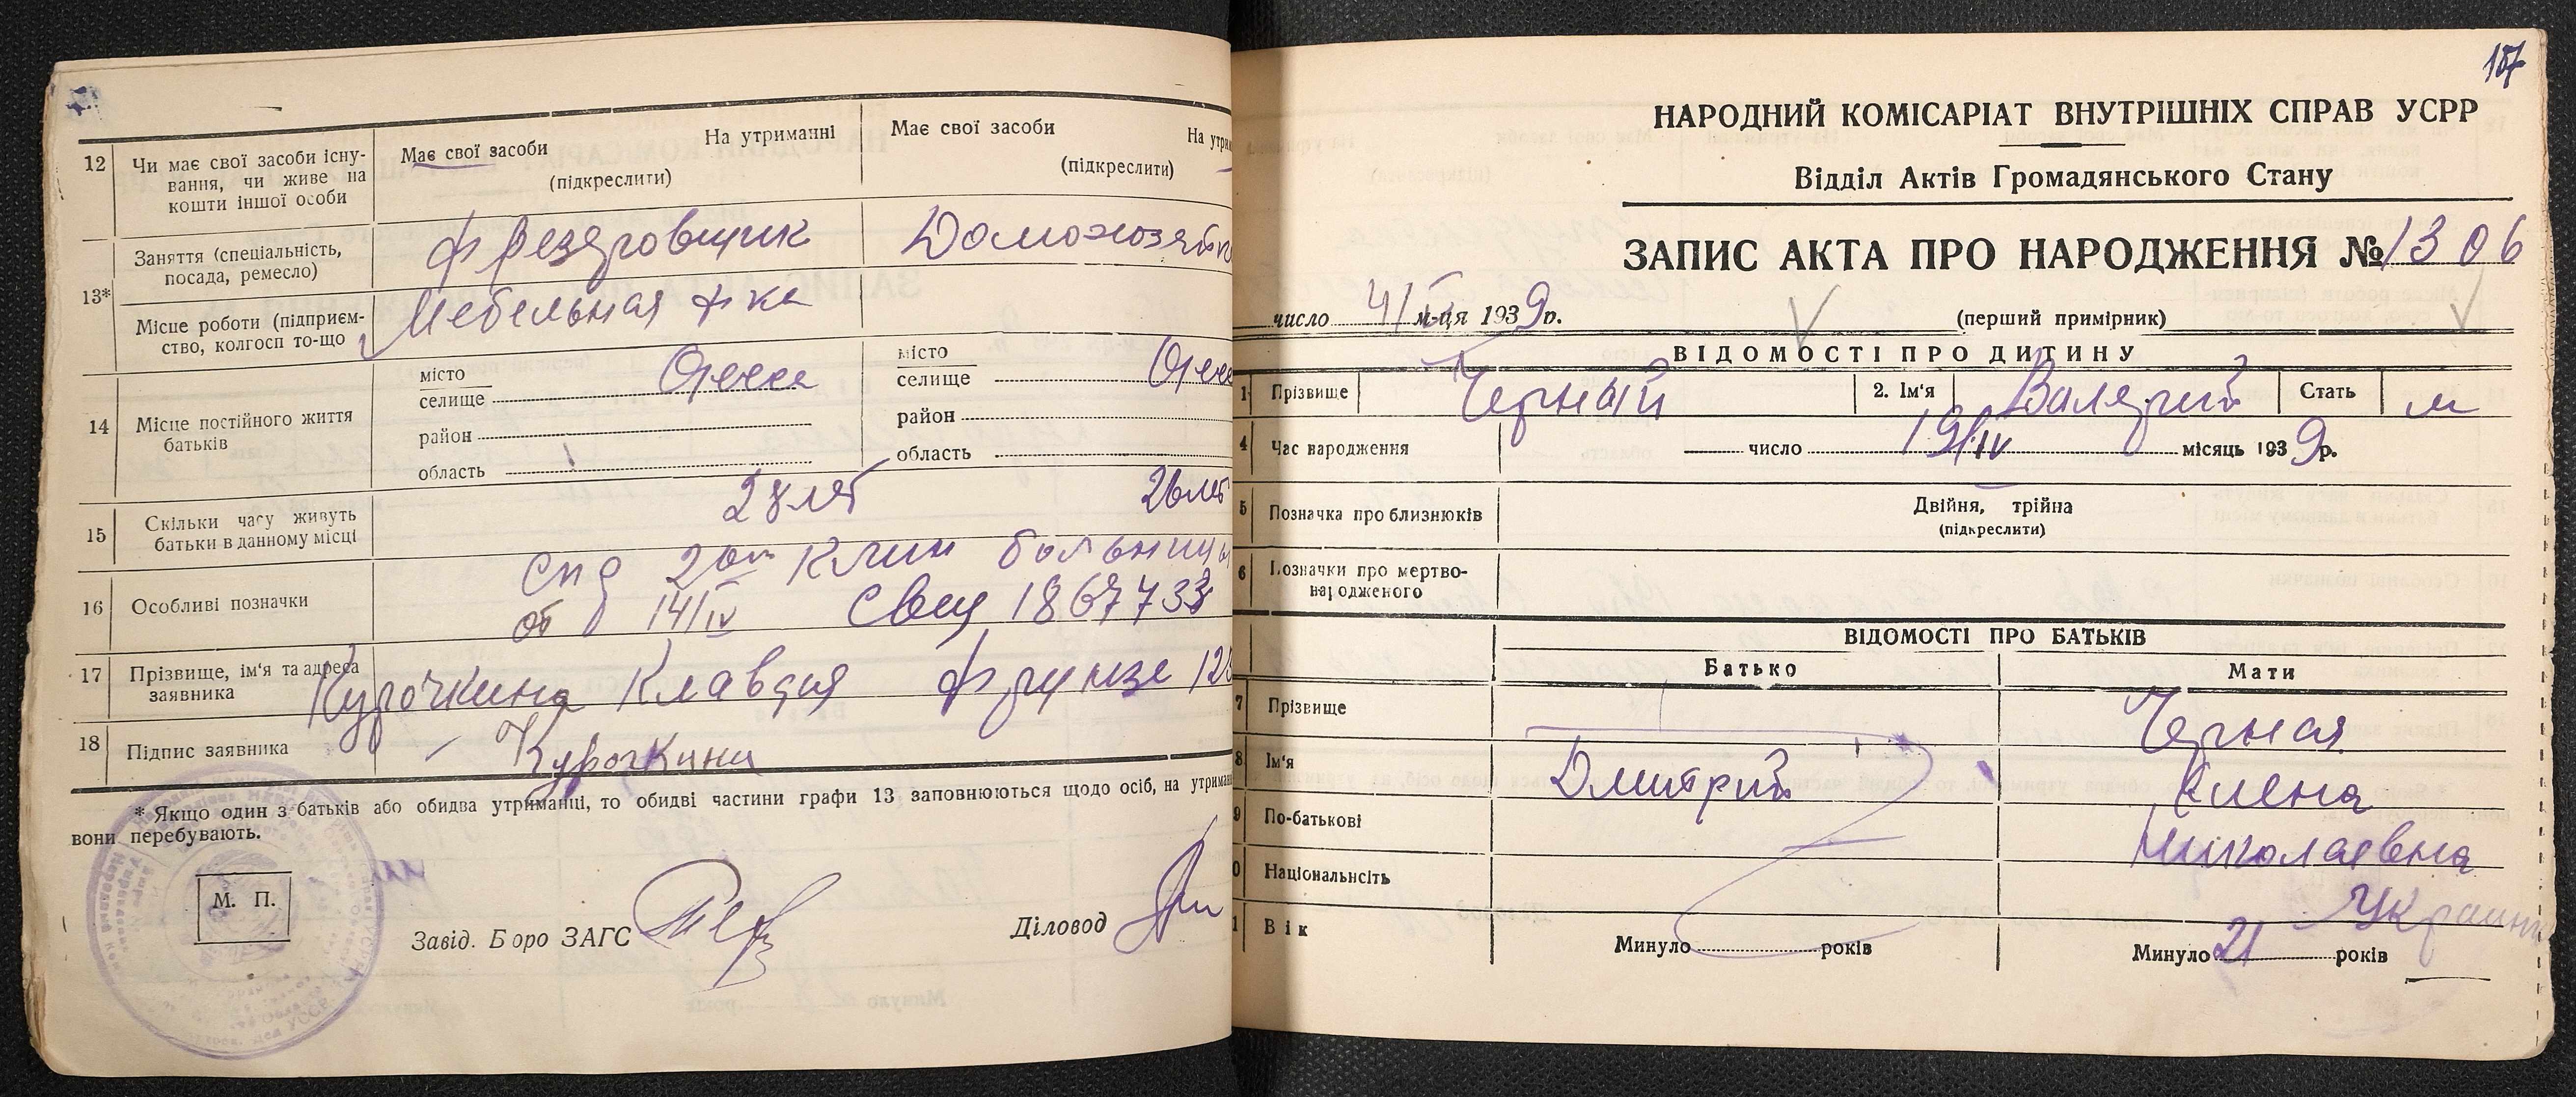 12 Чи має свої засоби існу-
вання, чи живе на
кошти іншої особи
Має свої засоби На утриманні
(підкреслити)
Має свої засоби На утрим
(підкреслити)
13* Заняття (спеціальність,
посада, ремесло)
Фрезеровщик Домохозяйка
Місце роботи (підприєм-
ство, колгосп то-що
Мебельная ф-ка
14 Місце постійного життя
батьків
місто
селище Одесса
район
область
місто
селище Одесса
район
область
15 Скільки часу живуть
батьки в данному місці
28 лет 26 лет
16 Особливі позначки
спр 2ой клин больницы
от 14/IV 1867733
17 Прізвище, ім'я та адреса
заявника
Курочкина Клавдия Фрунзе
18 Підпис заявника
Курочкина
* Якщо один з батьків або обидва утриманці, то обидві частини графи 13 заповнюються щодо осіб, на утриман
вони перебувають.
М. П.
Завід. Бюро ЗАГС Діловод
157
НАРОДНИЙ КОМІСАРІАТ ВНУТРІШНІХ СПРАВ УСРР
Відділ Актів Громадянського Стану
ЗАПИС АКТА ПРО НАРОДЖЕННЯ № 1306
число м-ця 1939р.
(перший примірник)
ВІДОМОСТІ ПРО ДИТИНУ
1 Прізвище Черный 2. Ім'я Валерий Стать м
4 Час народження число 19/IV місяць 1939р.
5 Позначка про близнюків Двійня, трійна
(підкреслити)
6 Позначки про мертво-
народженого
ВІДОМОСТІ ПРО БАТЬКІВ
Батько Мати
7 Прізвище Черная
8 Ім'я Дмитрий Елена
9 По-батькові Николаевна
0 Національність Украин
1 Вік Минуло років Минуло 21 років